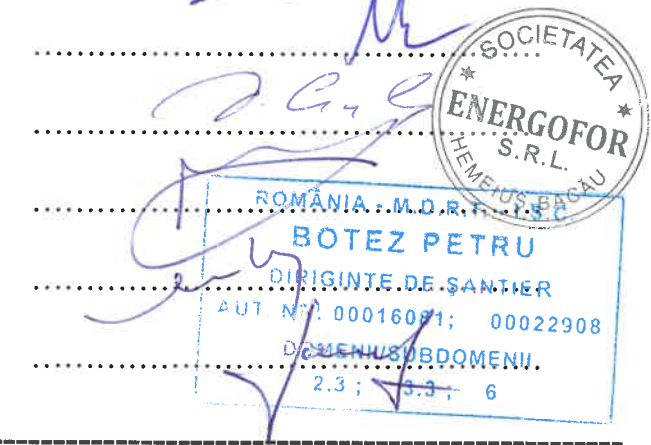 SOCIETATEA
ENERGOFOR
S.R.L.
HEMEIUȘ, BACĂU
ROMÂNIA - M.D.R.T. - I.S.C
BOTEZ PETRU
DIRIGINTE DE ŞANTIER
AUT. Nr. 00016081; 00022908
DOMENII/SUBDOMENII
2.3 ; 3.3 ; 6